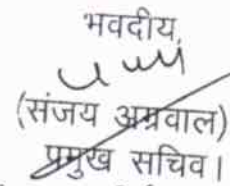 भवदीय,
(संजय अग्रवाल)
प्रमुख सचिव।